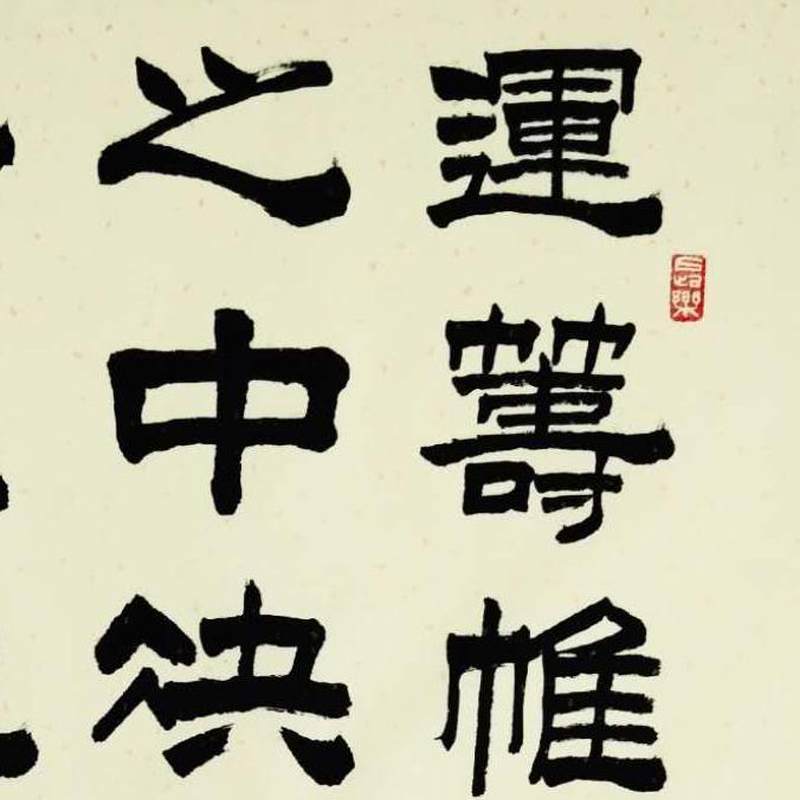 運籌帷
之中決